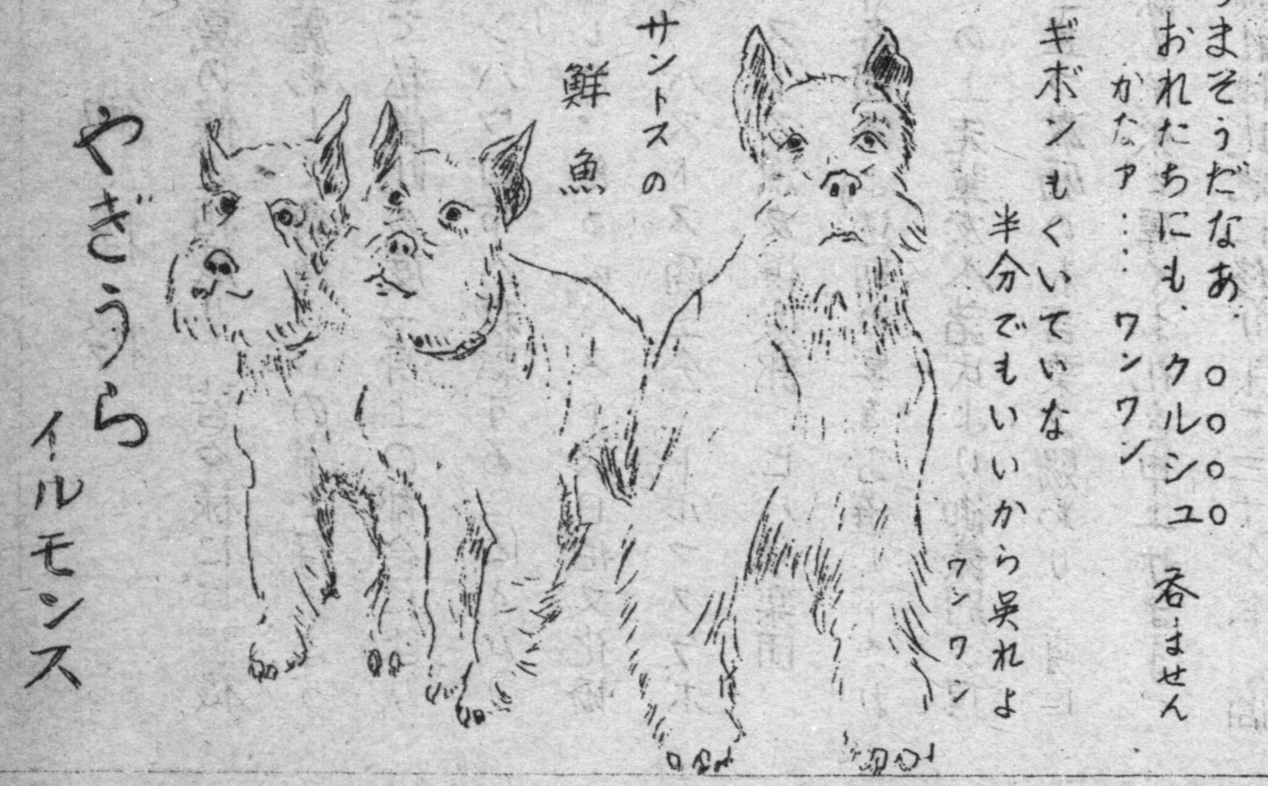 うまそうだなあ. ○○○○
おれたちにも. クルシュ 呑ません
かなァ‥‥ ワンワン
ギボンもくいていな
半分でもいいから呉れよ
ワンワン
サントスの
鮮魚
やぎうら
イルモンス